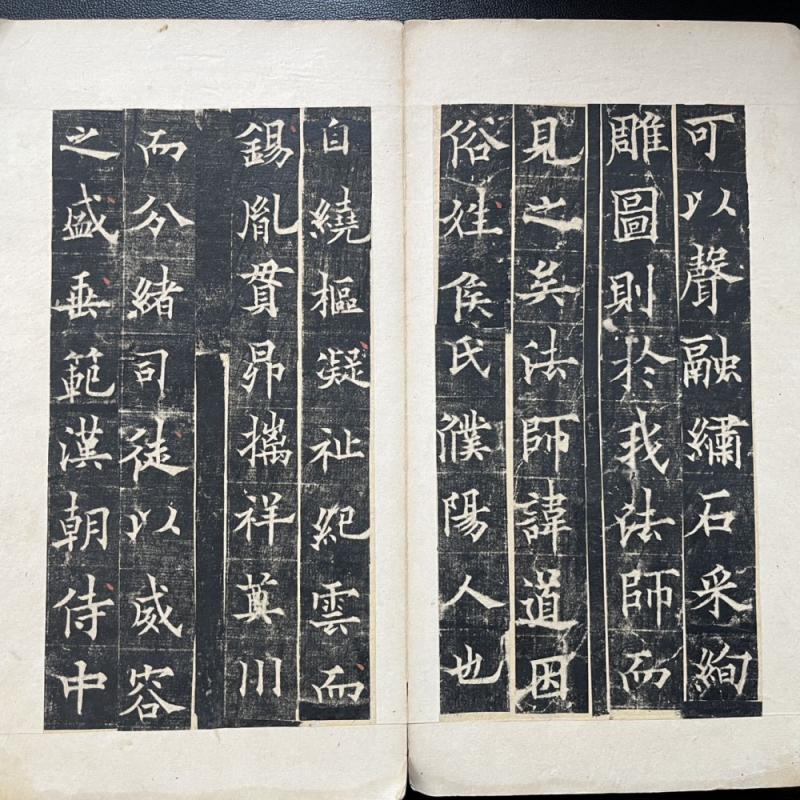 可以聲融繡石采絢
雕圖則於我法師而
見之矣法師諱道因
俗姓侯氏濮陽人也
自繞樞凝祉紀雲而
錫胤貫昴摛祥奠川
而分緒司徒以威容
之盛垂範漢朝侍中